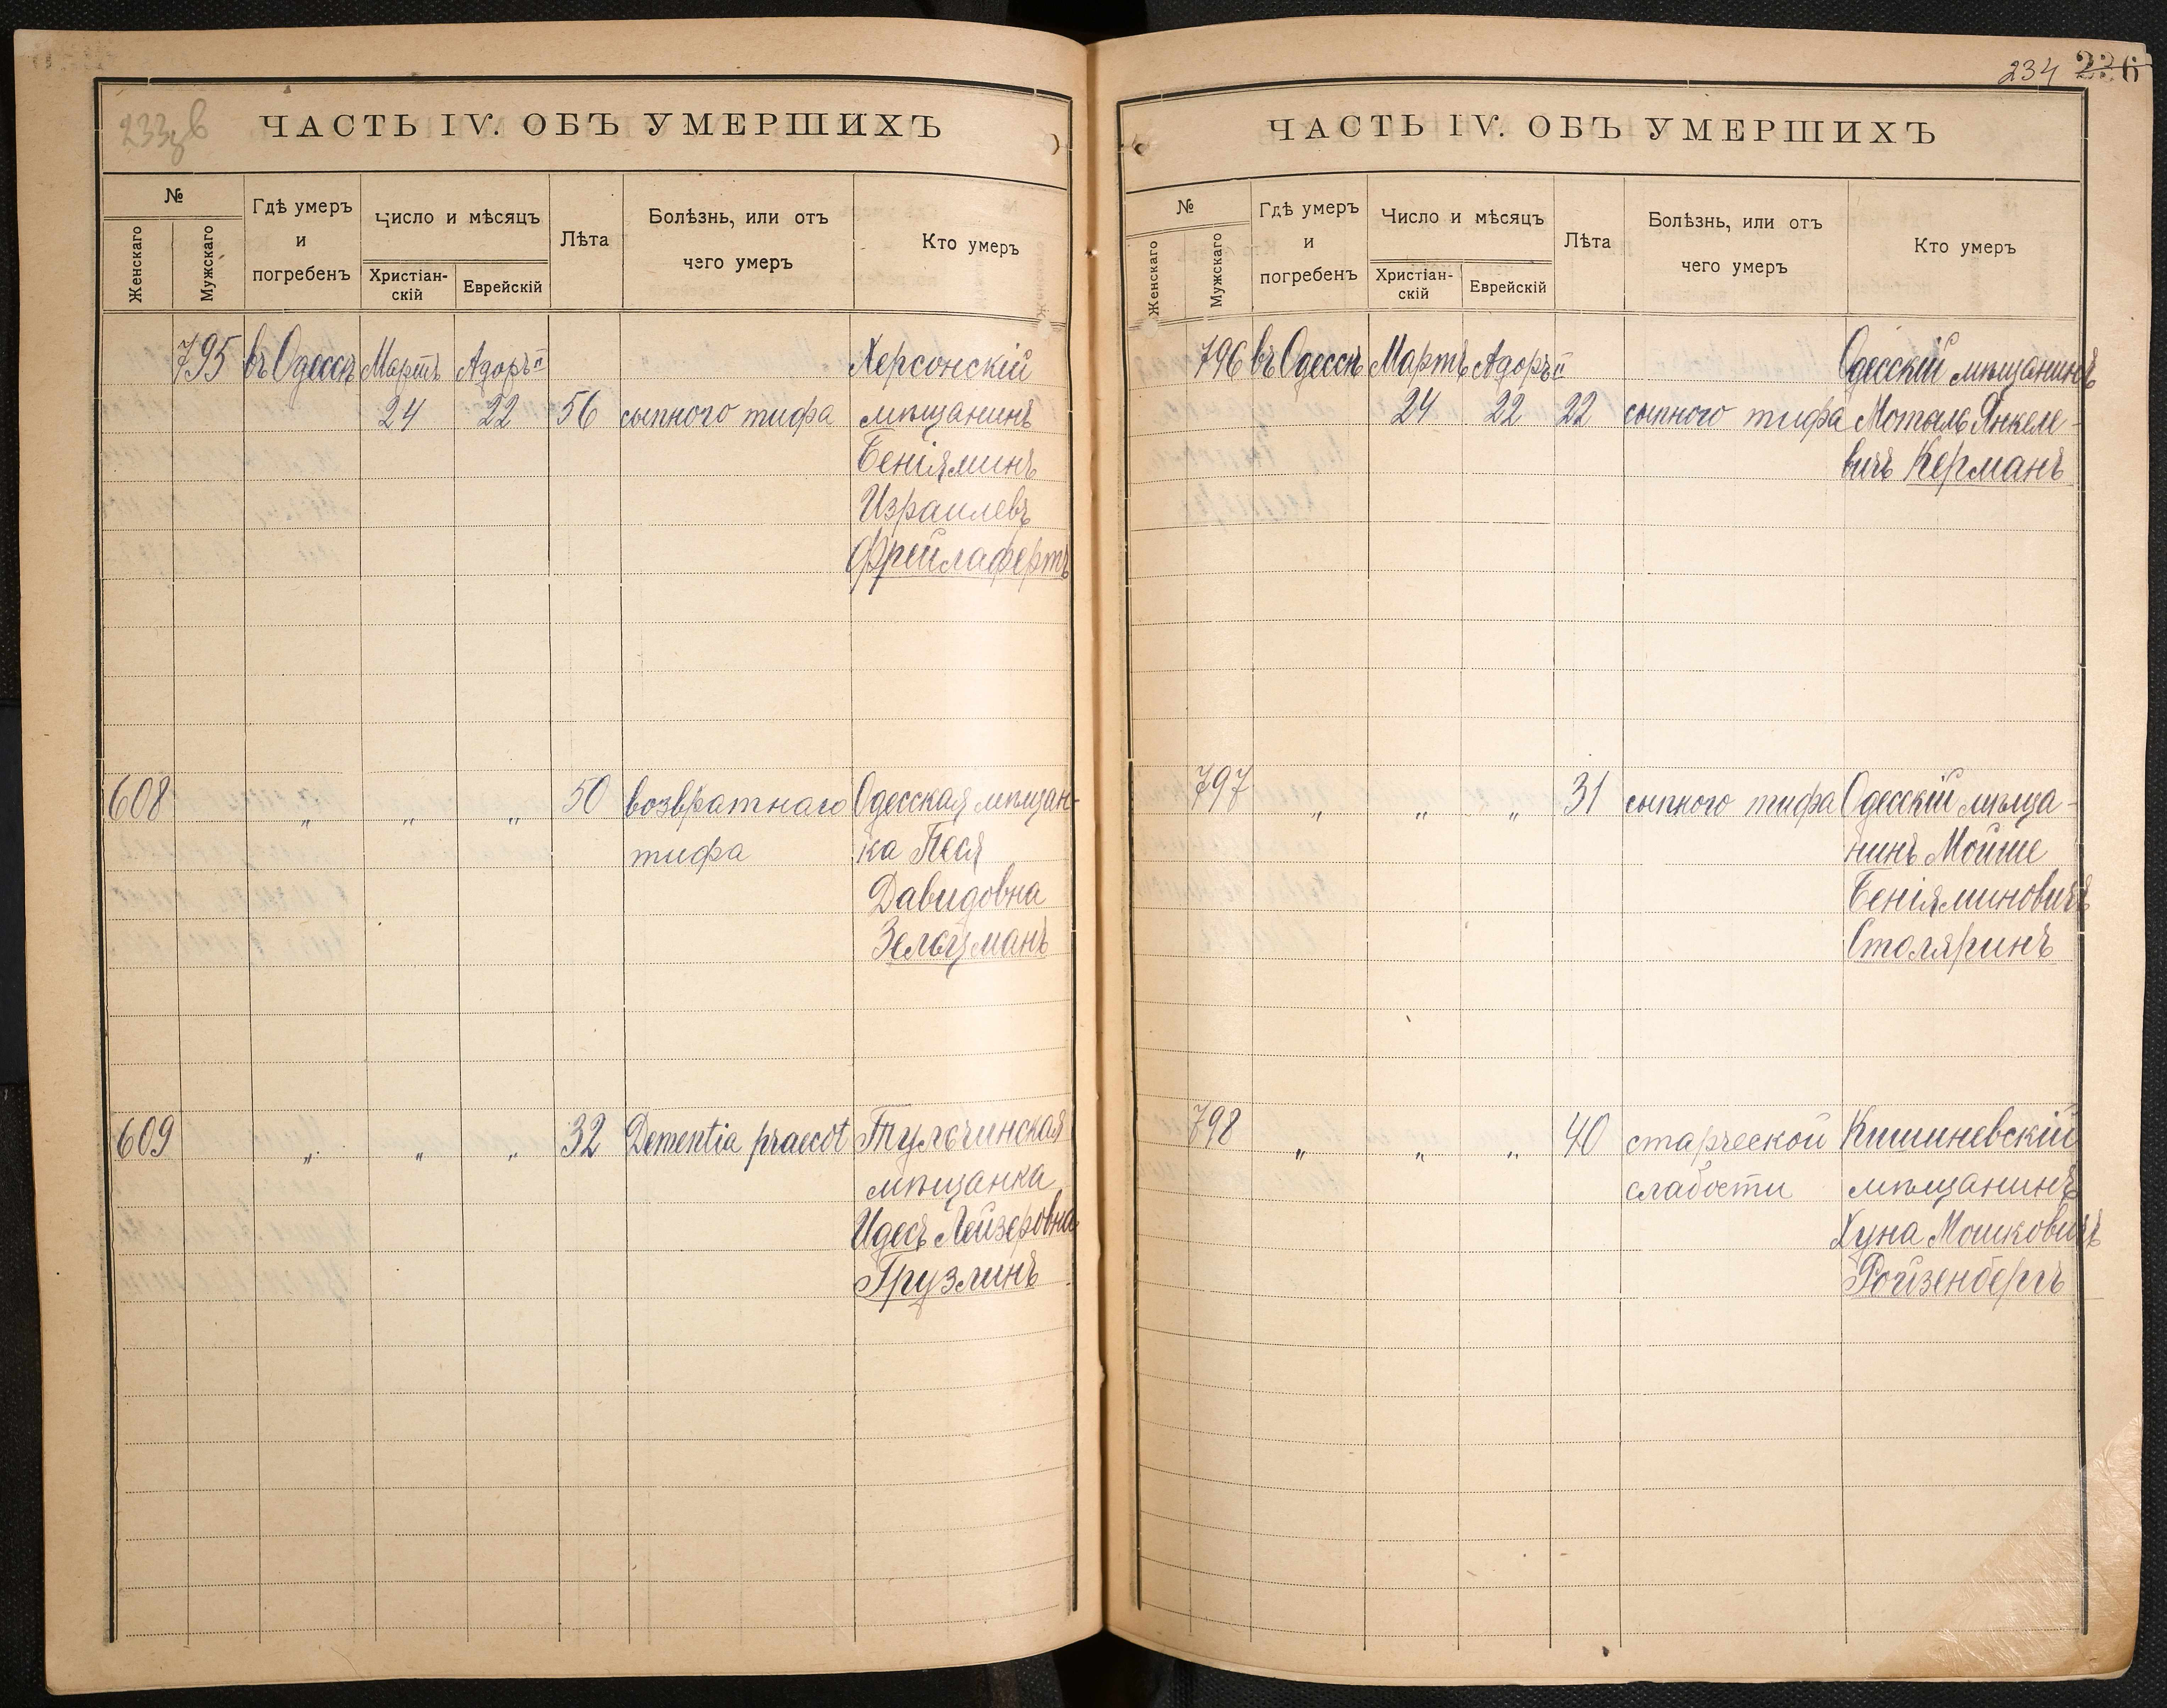 233 зв
ЧАСТЬ IV. ОБЪ УМЕРШИХЪ
№
Женскаго
Мужскаго
Гдѣ умеръ
и
погребенъ
Число и мѣсяцъ
Христіан-
скій
Еврейскій
Лѣта
Болѣзнь, или отъ
чего умеръ
Кто умеръ
795 въ Одессѣ Мартъ Адоръ II Херсонскій
24 22 56 сыпного тифа мѣщанинъ
Беніяминъ
Израилевъ
Фрейлафертъ
608 " " " 50 возвратнаго Одесская мѣщан-
тифа ка Песя
Давидовна
Зельцманъ
609 " " " 32 Dementia praecot Тульчинская
мѣщанка
Идесъ Лейзеровна
Грузлинъ
234 236
ЧАСТЬ IV. ОБЪ УМЕРШИХЪ
№
Женскаго
Мужскаго
Гдѣ умеръ
и
погребенъ
Число и мѣсяцъ
Христіан-
скій
Еврейскій
Лѣта
Болѣзнь, или отъ
чего умеръ
Кто умеръ
796 въ Одессѣ Мартъ Адоръ II Одесскій мѣщанинъ
24 22 22 сыпного тифа Мотель Янкеле-
вичъ Керманъ
797 " " " 31 сыпного тифа Одесскій мѣща-
нинъ Мойше
Беніяминовичъ
Столяринъ
798 " " " 40 старческой Кишиневскій
слабости мѣщанинъ
Хуна Мошковичъ
Ройзенбергъ